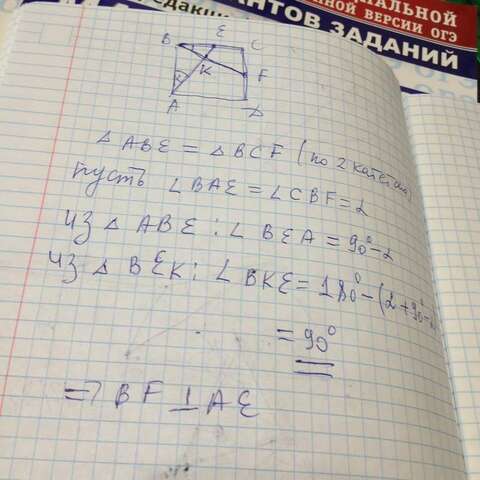 ЦИАЛЬНОЙ
ННОЙ ВЕРСИИ ОГЭ
едакци
АНТОВ ЗАДАНИЙ
B E C
K F
A D
△ ABE = △ BCF (по 2 катетам)
пусть ∠ BAE = ∠ CBF = α
из △ ABE : ∠ BEA = 90° - α
из △ BEK : ∠ BKE = 180° - (α + 90° - α
= 90°
=> BF ⊥ AE